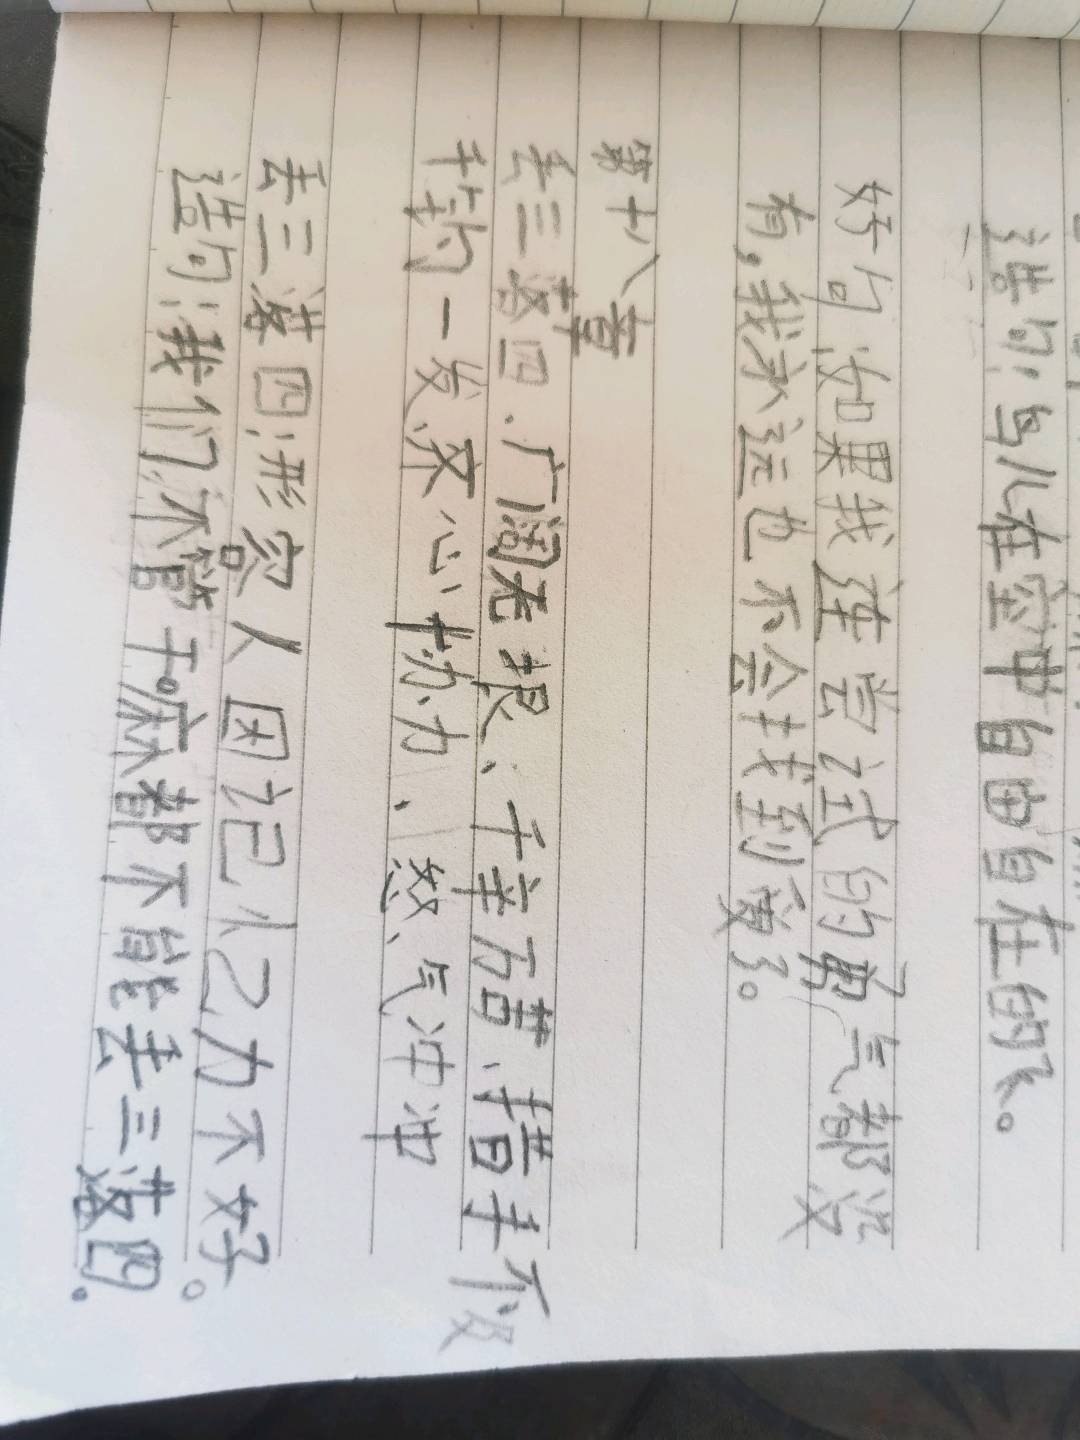 造句:鸟儿在空中自由自在的飞。
好句:如果我连尝试的勇气都没
有,我永远也不会找到家了。
第十八章
丢三落四、广阔无垠、千辛万苦、措手不及
千钧一发、齐心协力、怒气冲冲
丢三落四:形容人因记忆力不好。
造句:我们不管干嘛都不能丢三落四.